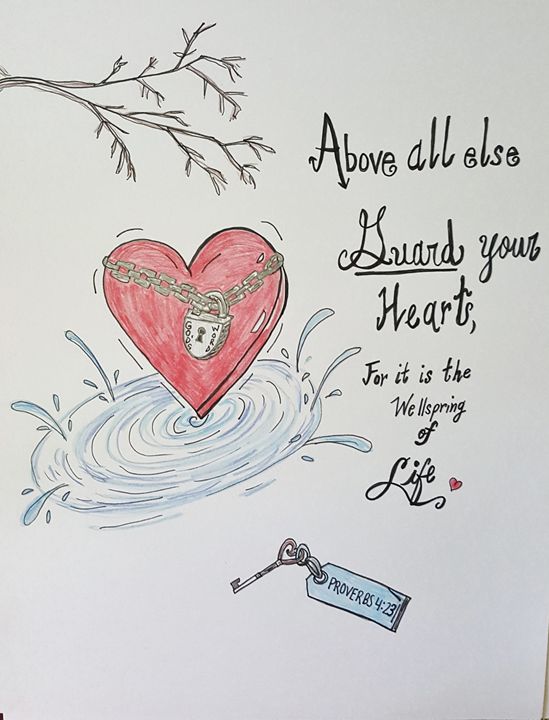 Above all else
Guard your
Heart,
For it is the
Wellspring
of
Life
GOD'S
WORD
PROVERBS 4:23